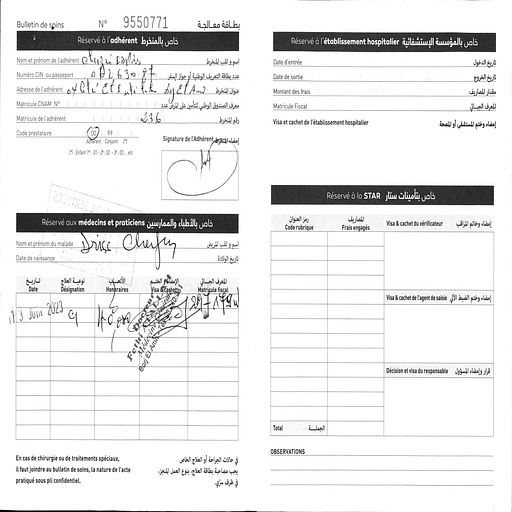 Bulletin de soins N° 9550771 بطاقة معالجة
Réservé à l'adhérent خاص بالمنخرط
Nom et prénom de l'adhérent اسم و لقب المنخرط
Numéro CIN ou passeport عدد بطاقة التعريف الوطنية أو جواز السفر
Adresse de l'adhérent عنوان المنخرط
Matricule CNAM N° معرف الصندوق الوطني للتأمين على المرض عدد
Matricule de l'adhérent 236 رقم المنخرط
Code prestataire 00 99
Adhérent Conjoint (*)
(*) : Enfant 1er : 01 - 2e : 02 - 3e : 03 ... etc
Signature de l'Adhérent إمضاء المنخرط
Réservé aux médecins et praticiens خاص بالأطباء والممارسين
Nom et prénom du malade Driss اسم و لقب المريض
Date de naissance تاريخ الولادة
تاريخ نوعية العلاج الأتعاب الإمضاء الختم المعرف الجبائي
Date Désignation Honoraires Visa & cachet Matricule fiscal
13 Juin 2023 C
Docteur
Fethi
Médecine
Borj El Amri
En cas de chirurgie ou de traitements spéciaux,
il faut joindre au bulletin de soins, la nature de l'acte
pratiqué sous pli confidentiel.
في حالات الجراحة أو العلاج الخاص
يجب مصاحبة بطاقة العلاج، بنوع العمل المنجز،
في ظرف سري.
Réservé à l'établissement hospitalier خاص بالمؤسسة الإستشفائية
Date d'entrée تاريخ الدخول
Date de sortie تاريخ الخروج
Montant des frais مقدار المصاريف
Matricule Fiscal المعرف الجبائي
Visa et cachet de l'établissement hospitalier إمضاء وختم المستشفى أو المصحة
Réservé à la STAR خاص بتأمينات ستار
رمز العنوان المصاريف
Code rubrique Frais engagés
Visa & cachet du vérificateur إمضاء وختم المراقب
Visa & cachet de l'agent de saisie إمضاء وختم الضبط الآلي
Décision et visa du responsable قرار وإمضاء المسؤول
Total الجملة
OBSERVATIONS